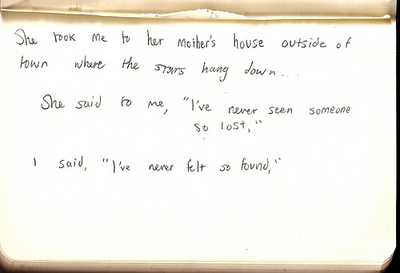 She took me to her mother's house outside of
town where the stars hang down...
She said to me, "I've never seen someone
so lost,"
I said, "I've never felt so found,"